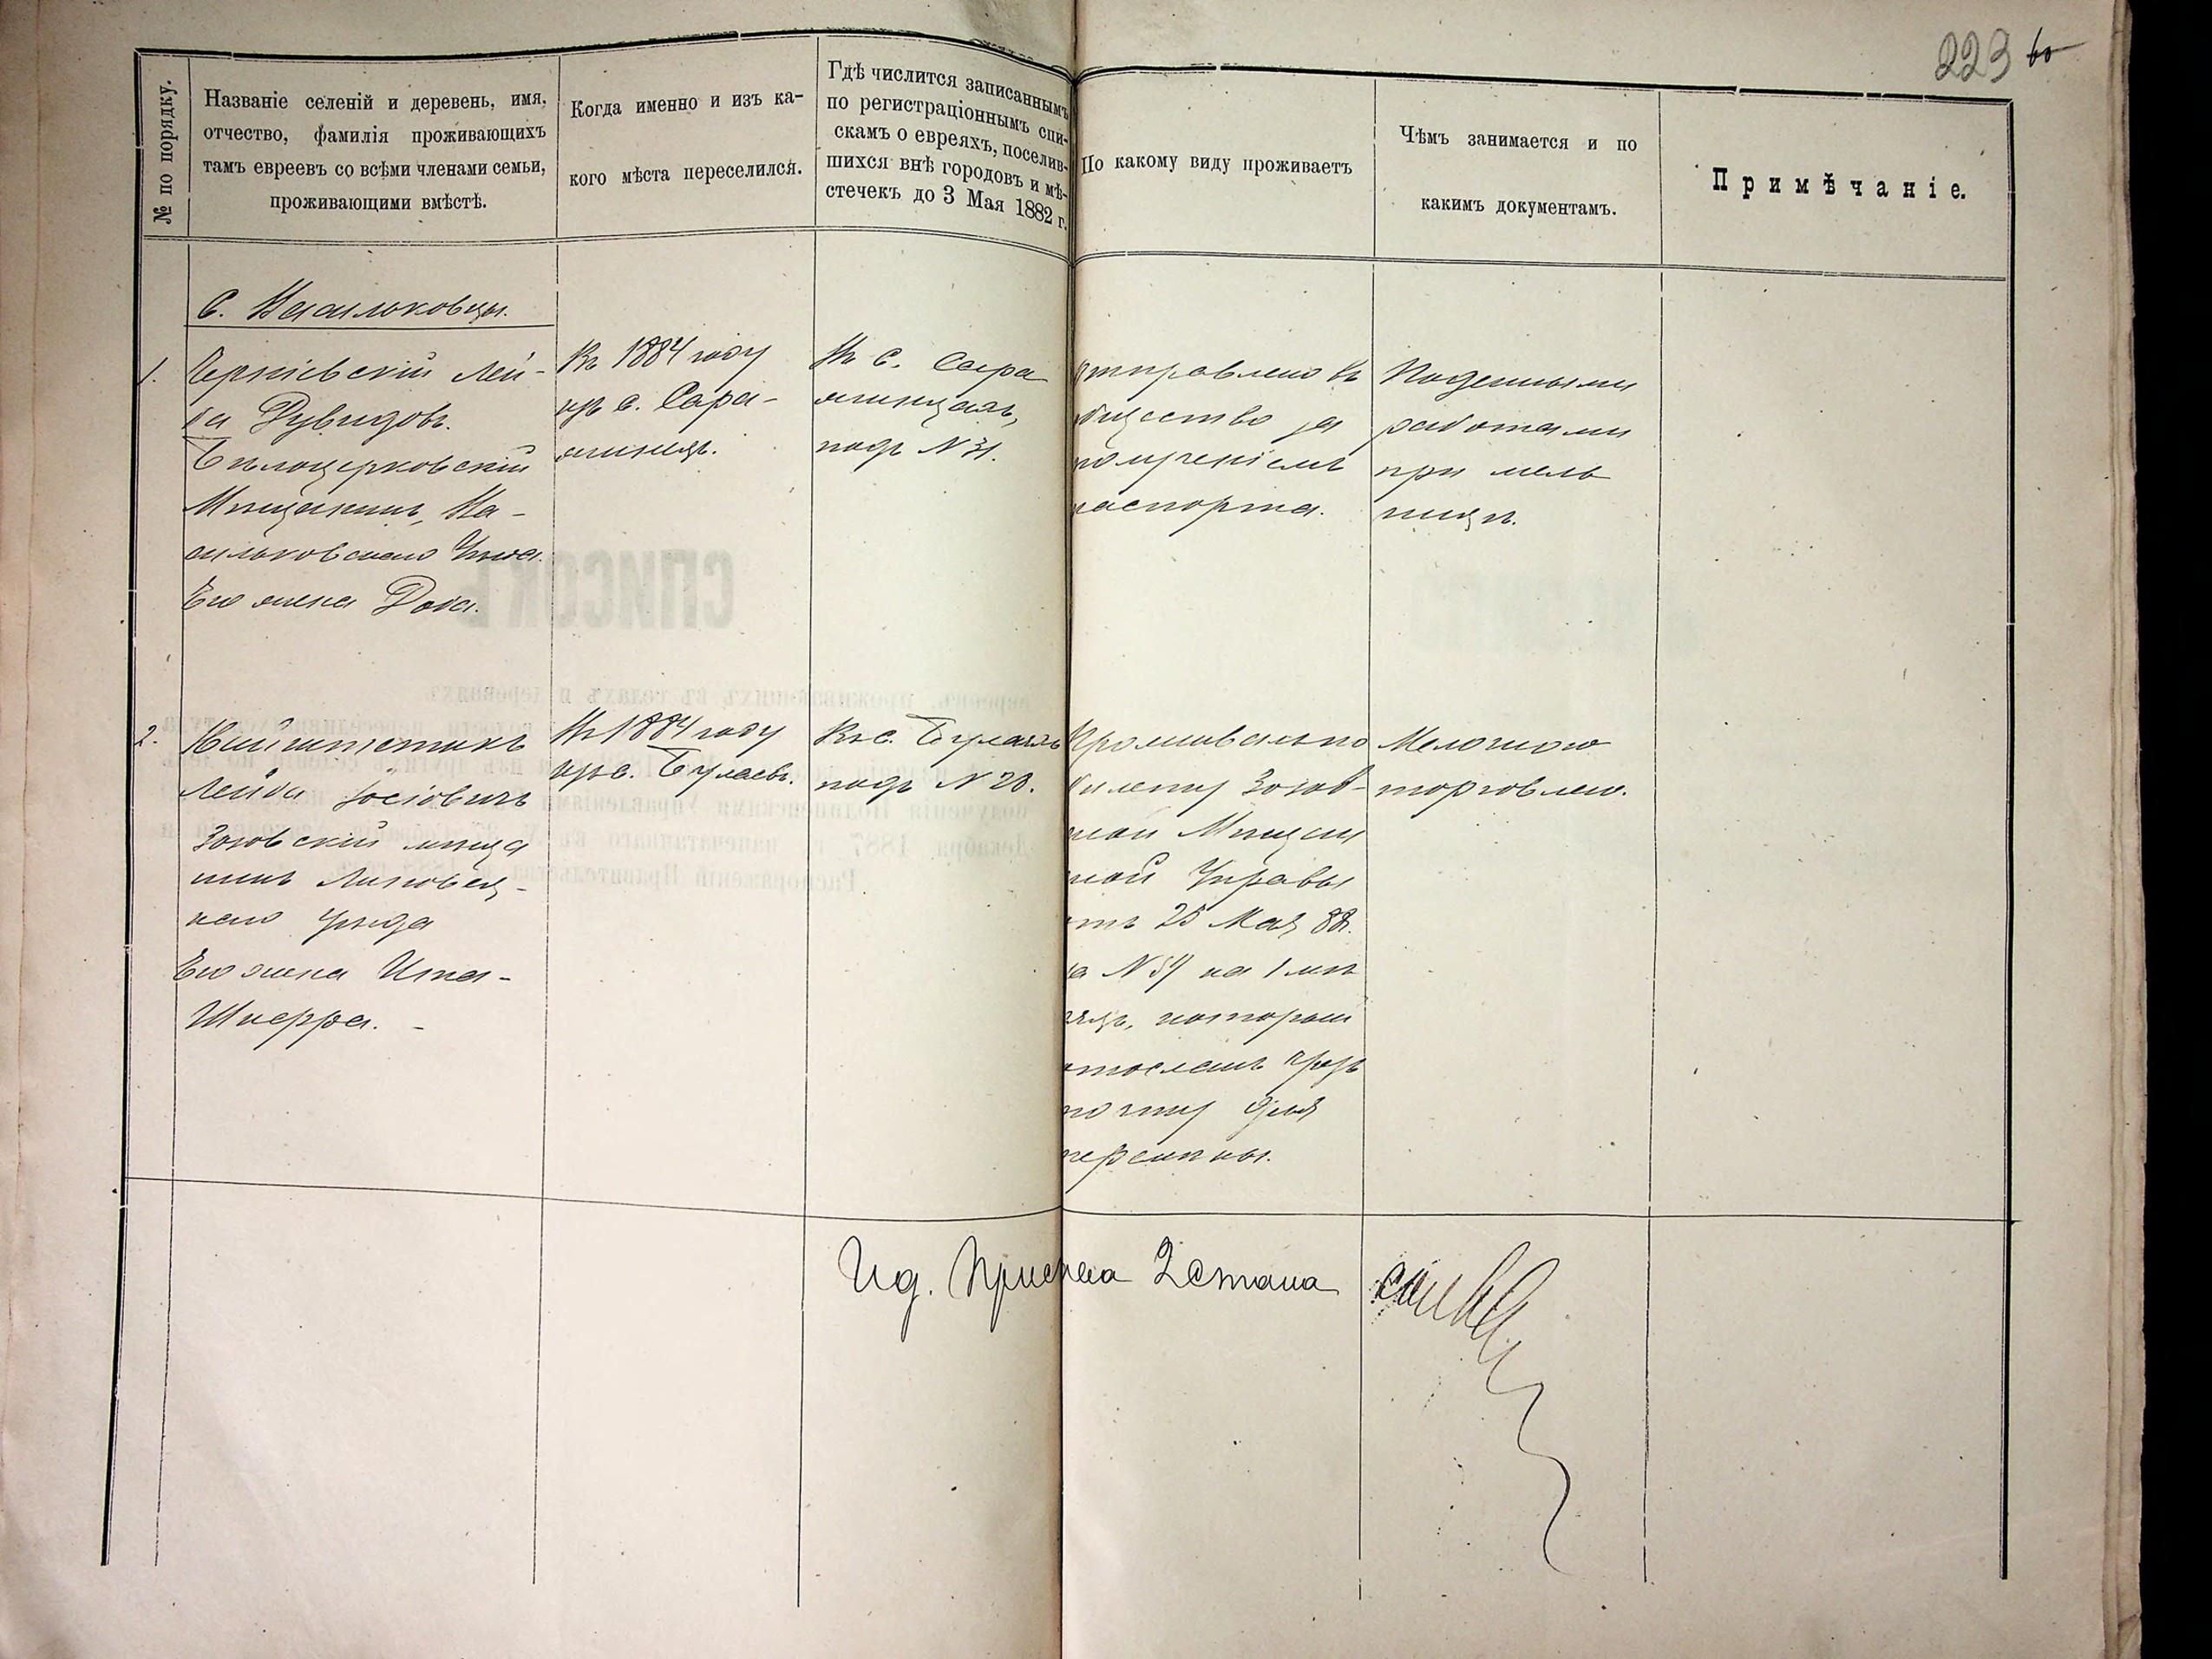 223
№ по порядку.
Названіе селеній и деревень, имя,
отчество, фамилія проживающихъ
тамъ евреевъ со всѣми членами семьи,
проживающими вмѣстѣ.
Когда именно и изъ ка-
кого мѣста переселился.
Гдѣ числится записаннымъ
по регистраціоннымъ спи-
скамъ о евреяхъ, поселив-
шихся внѣ городовъ и мѣ-
стечекъ до 3 Мая 1882 г.
По какому виду проживаетъ
Чѣмъ занимается и по
какимъ документамъ.
Примѣчаніе.
С. Васильковцы.
1.
Лей-
ба Дувидовъ.
Бѣлоцерковскій
Мѣщанинъ, Ва-
сильковскаго Уѣзда.
Его жена Двора.
Въ 1884 году
изъ с. Сара-
жинецъ.
Въ с. Сара
жинцахъ,
подъ N 31.
отправлено въ
общество за
полученіемъ
паспорта.
Поденными
работами
при мель
ницѣ.
2.
Лейба Іосіовичъ
Зозовскій мѣща
нинъ Липовец-
каго уѣзда
Его жена Ита-
Шпера.
Въ 1884 году
изъ с. Булаевъ.
Въ с. Булаяхъ
подъ N 20.
билету Зозов-
ской Мѣщан
ской Управы
отъ 25 Мая 88.
за N 54 на 1 мѣ
сяцъ, который
отосланъ чрезъ
почту для
перемѣны.
Мелочною
торговлею.
И д. Пристава 2 Стана